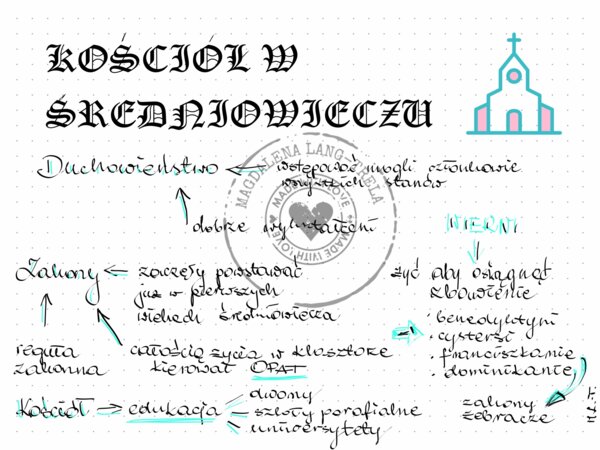 KOŚCIÓŁ W
ŚREDNIOWIECZU
Duchowieństwo ← wstępować mogli członkowie
wszystkich stanów
dobrze wykształceni
MAGDALENA LANG-
MADE WITH LOVE
MADE WITH LOVE
WIERNI
Zakony ← zaczęły powstawać
już w pierwszych
wiekach średniowiecza
żyć aby osiągnąć
zbawienie
• benedyktyni
• cystersi
• franciszkanie
• dominikanie
zakony
żebracze
reguła
zakonna
całością życia w klasztorze
kierował OPAT
Kościół → edukacja
dwory
szkoły parafialne
uniwersytety